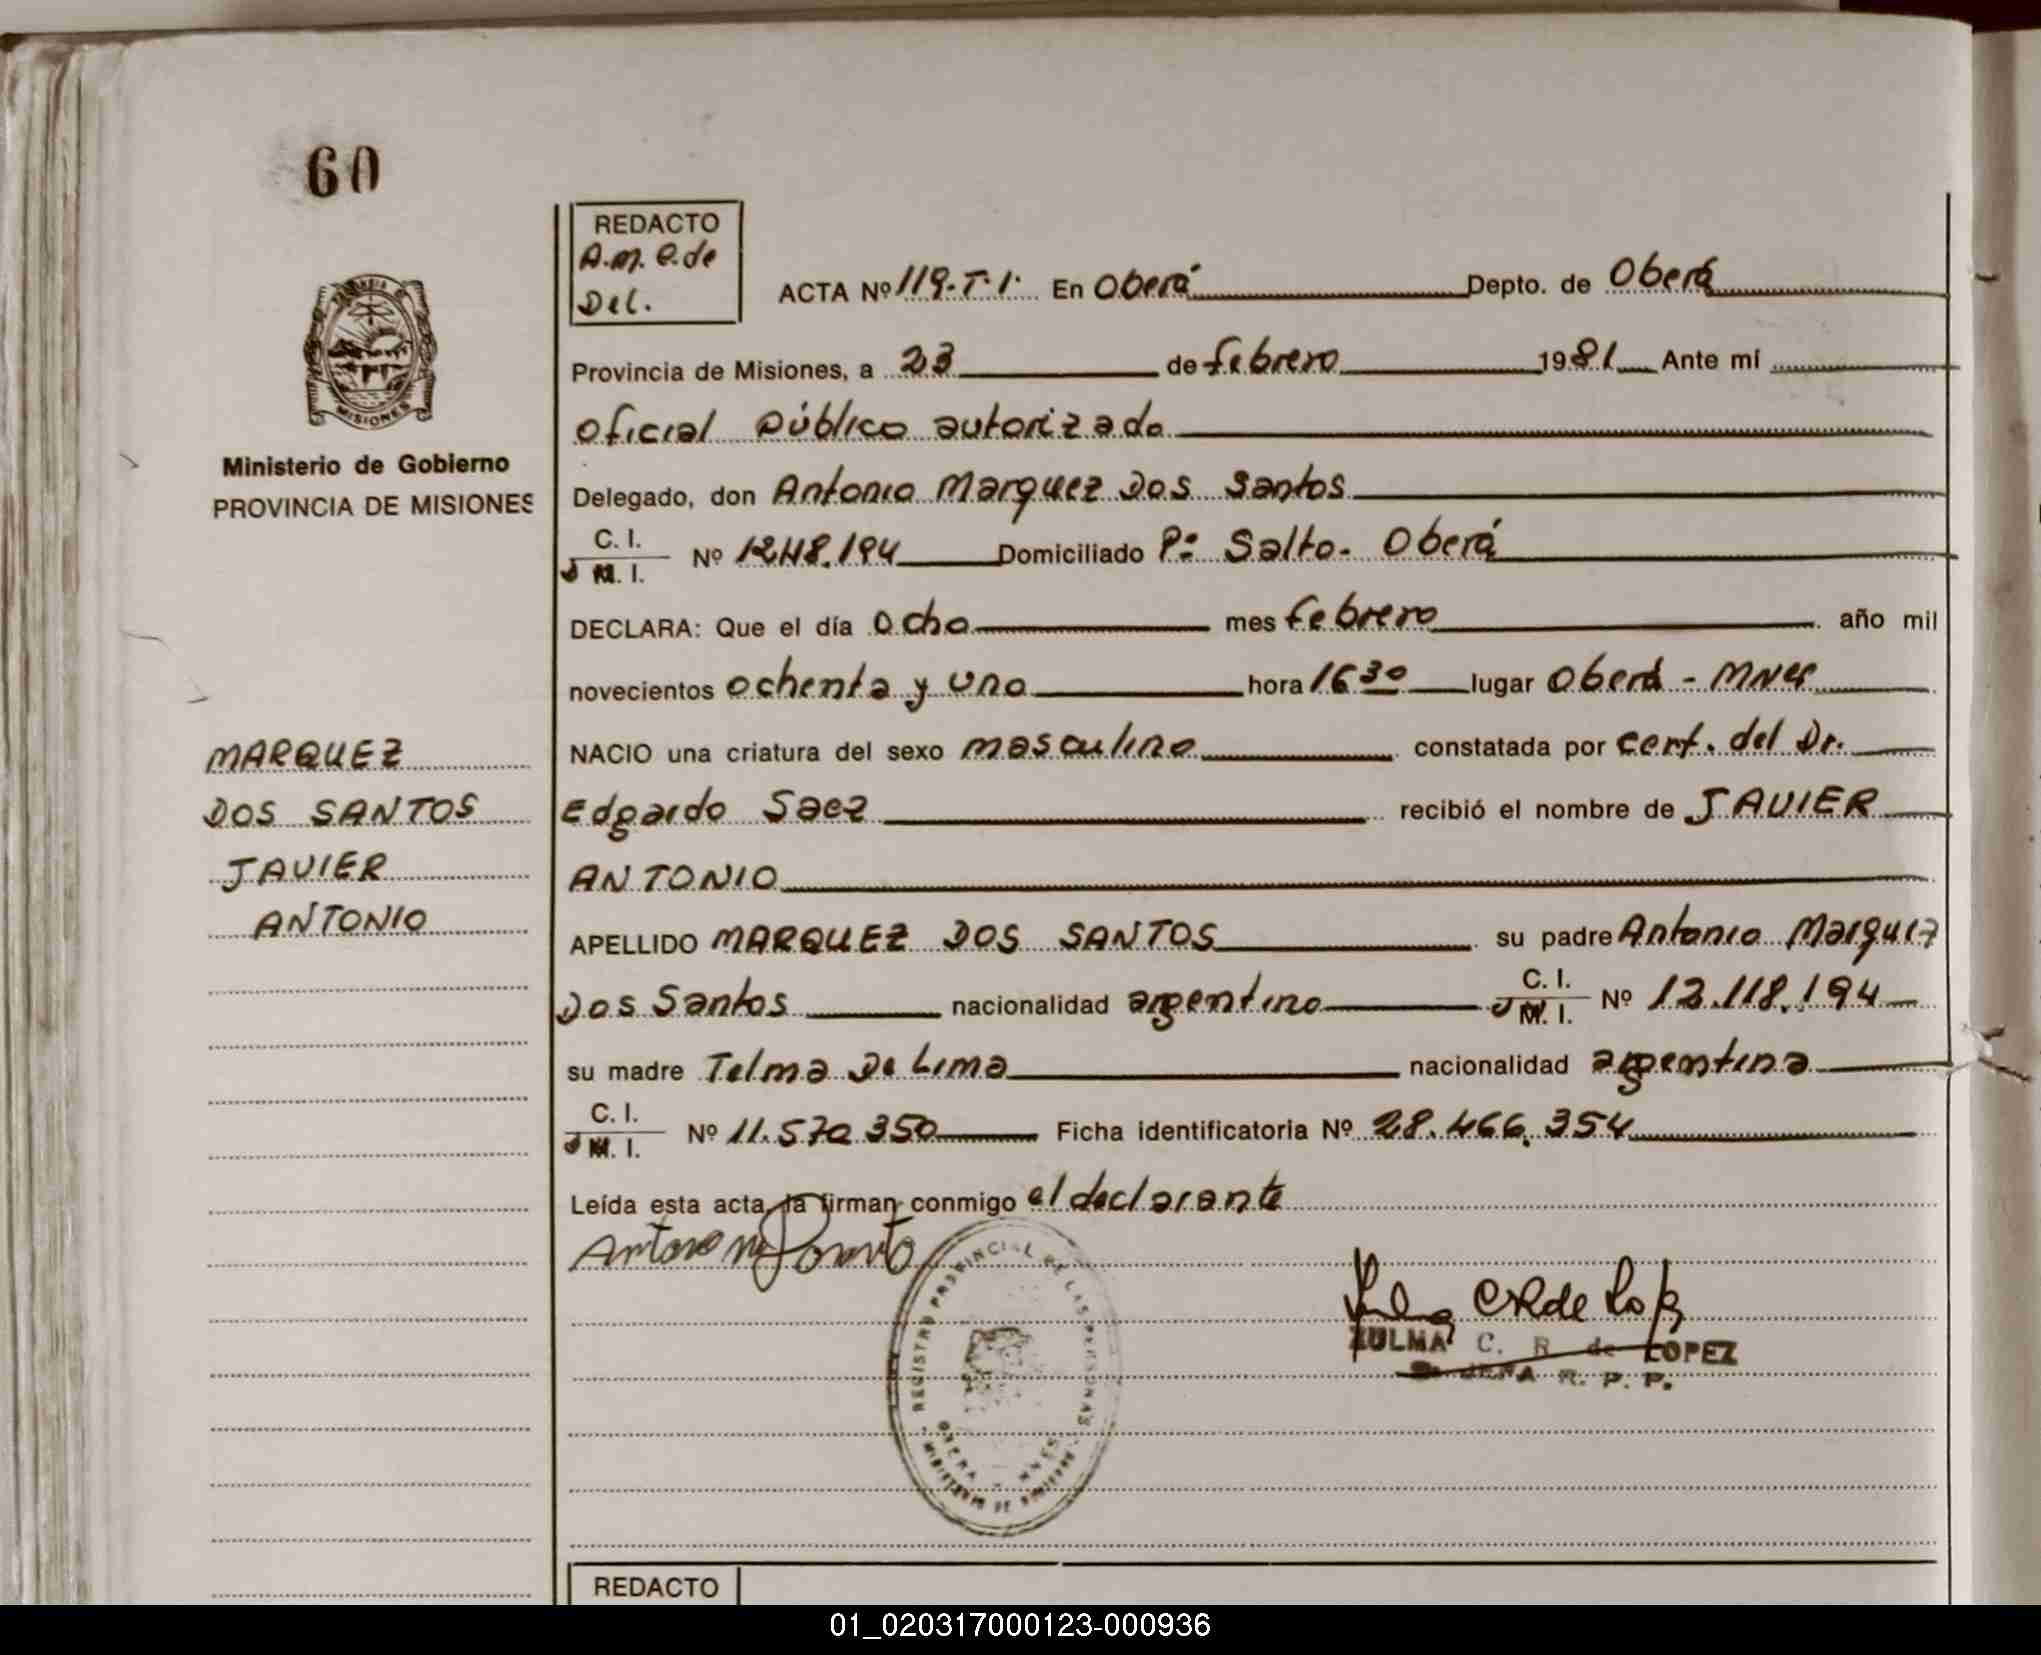 60
REDACTO
A.M.C. de
Del.
ACTA Nº 119-T-1- En Oberá Depto. de Oberá
Provincia de Misiones, a 23 de febrero 1981 Ante mí
Oficial Público autorizado
Delegado, don Antonio Marquez Dos Santos
C. I.
M. I. Nº 12.118.194 Domiciliado Pº Salto- Oberá
DECLARA: Que el día Ocho mes febrero año mil
novecientos ochenta y uno hora 16 30 lugar Oberá - Mnes
NACIO una criatura del sexo masculino constatada por cert. del Dr.
Edgardo Saez recibió el nombre de JAVIER
ANTONIO
APELLIDO MARQUEZ DOS SANTOS su padre Antonio Marquez
Dos Santos nacionalidad argentino C. I.
M. I. Nº 12.118.194
su madre Telma De Lima nacionalidad argentina
C. I.
M. I. Nº 11.570.350 Ficha identificatoria Nº 28.466.354
Leída esta acta, la firman conmigo el declarante
Ministerio de Gobierno
PROVINCIA DE MISIONES
MARQUEZ
DOS SANTOS
JAVIER
ANTONIO
MISIONES
REGISTRO PROVINCIAL DE LAS PERSONAS
OBERA - MNES
MINISTERIO DE GOBIERNO
ZULMA C. R. de LOPEZ
JEFA R. P. P.
REDACTO
01_020317000123-000936